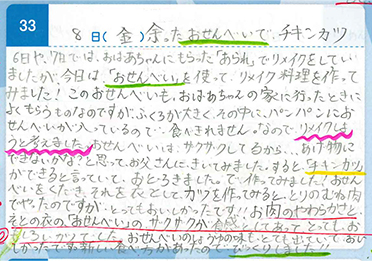 33
8日(金)余ったおせんべいで、チキンカツ
6日や、7日では、おばあちゃんにもらった「あられ」でリメイクをしてい
ましたが、今日は、「おせんべい」を使って、リメイク料理を作って
みました!このおせんべいも、おばあちゃんの家に行ったときに
よくもらうものなのですが、ふくろが大きく、その中に、パンパンにお
せんべいが入っているので、食べきれません。なので、リメイクしよ
うと考えました。おせんべいは、サクサクしてるから…あげ物に
できないかな?と思って、お父さんにきいてみました。すると、「チキンカツ」
ができると言っていて、おどろきました。で、作ってみました!おせん
べいをくだき、それを衣として、カツを作ってみると、とりのむね肉
でやったのですが、とってもおいしかったです!!お肉のやわらかさと、
その衣の「おせんべい」のサクサクが食感としてあってとっても、お
もしろいカツでした。おせんべいのしょうゆの味も、とても出ていて、おい
しかったです。新しい食べ方があったので、びっくりしました!!